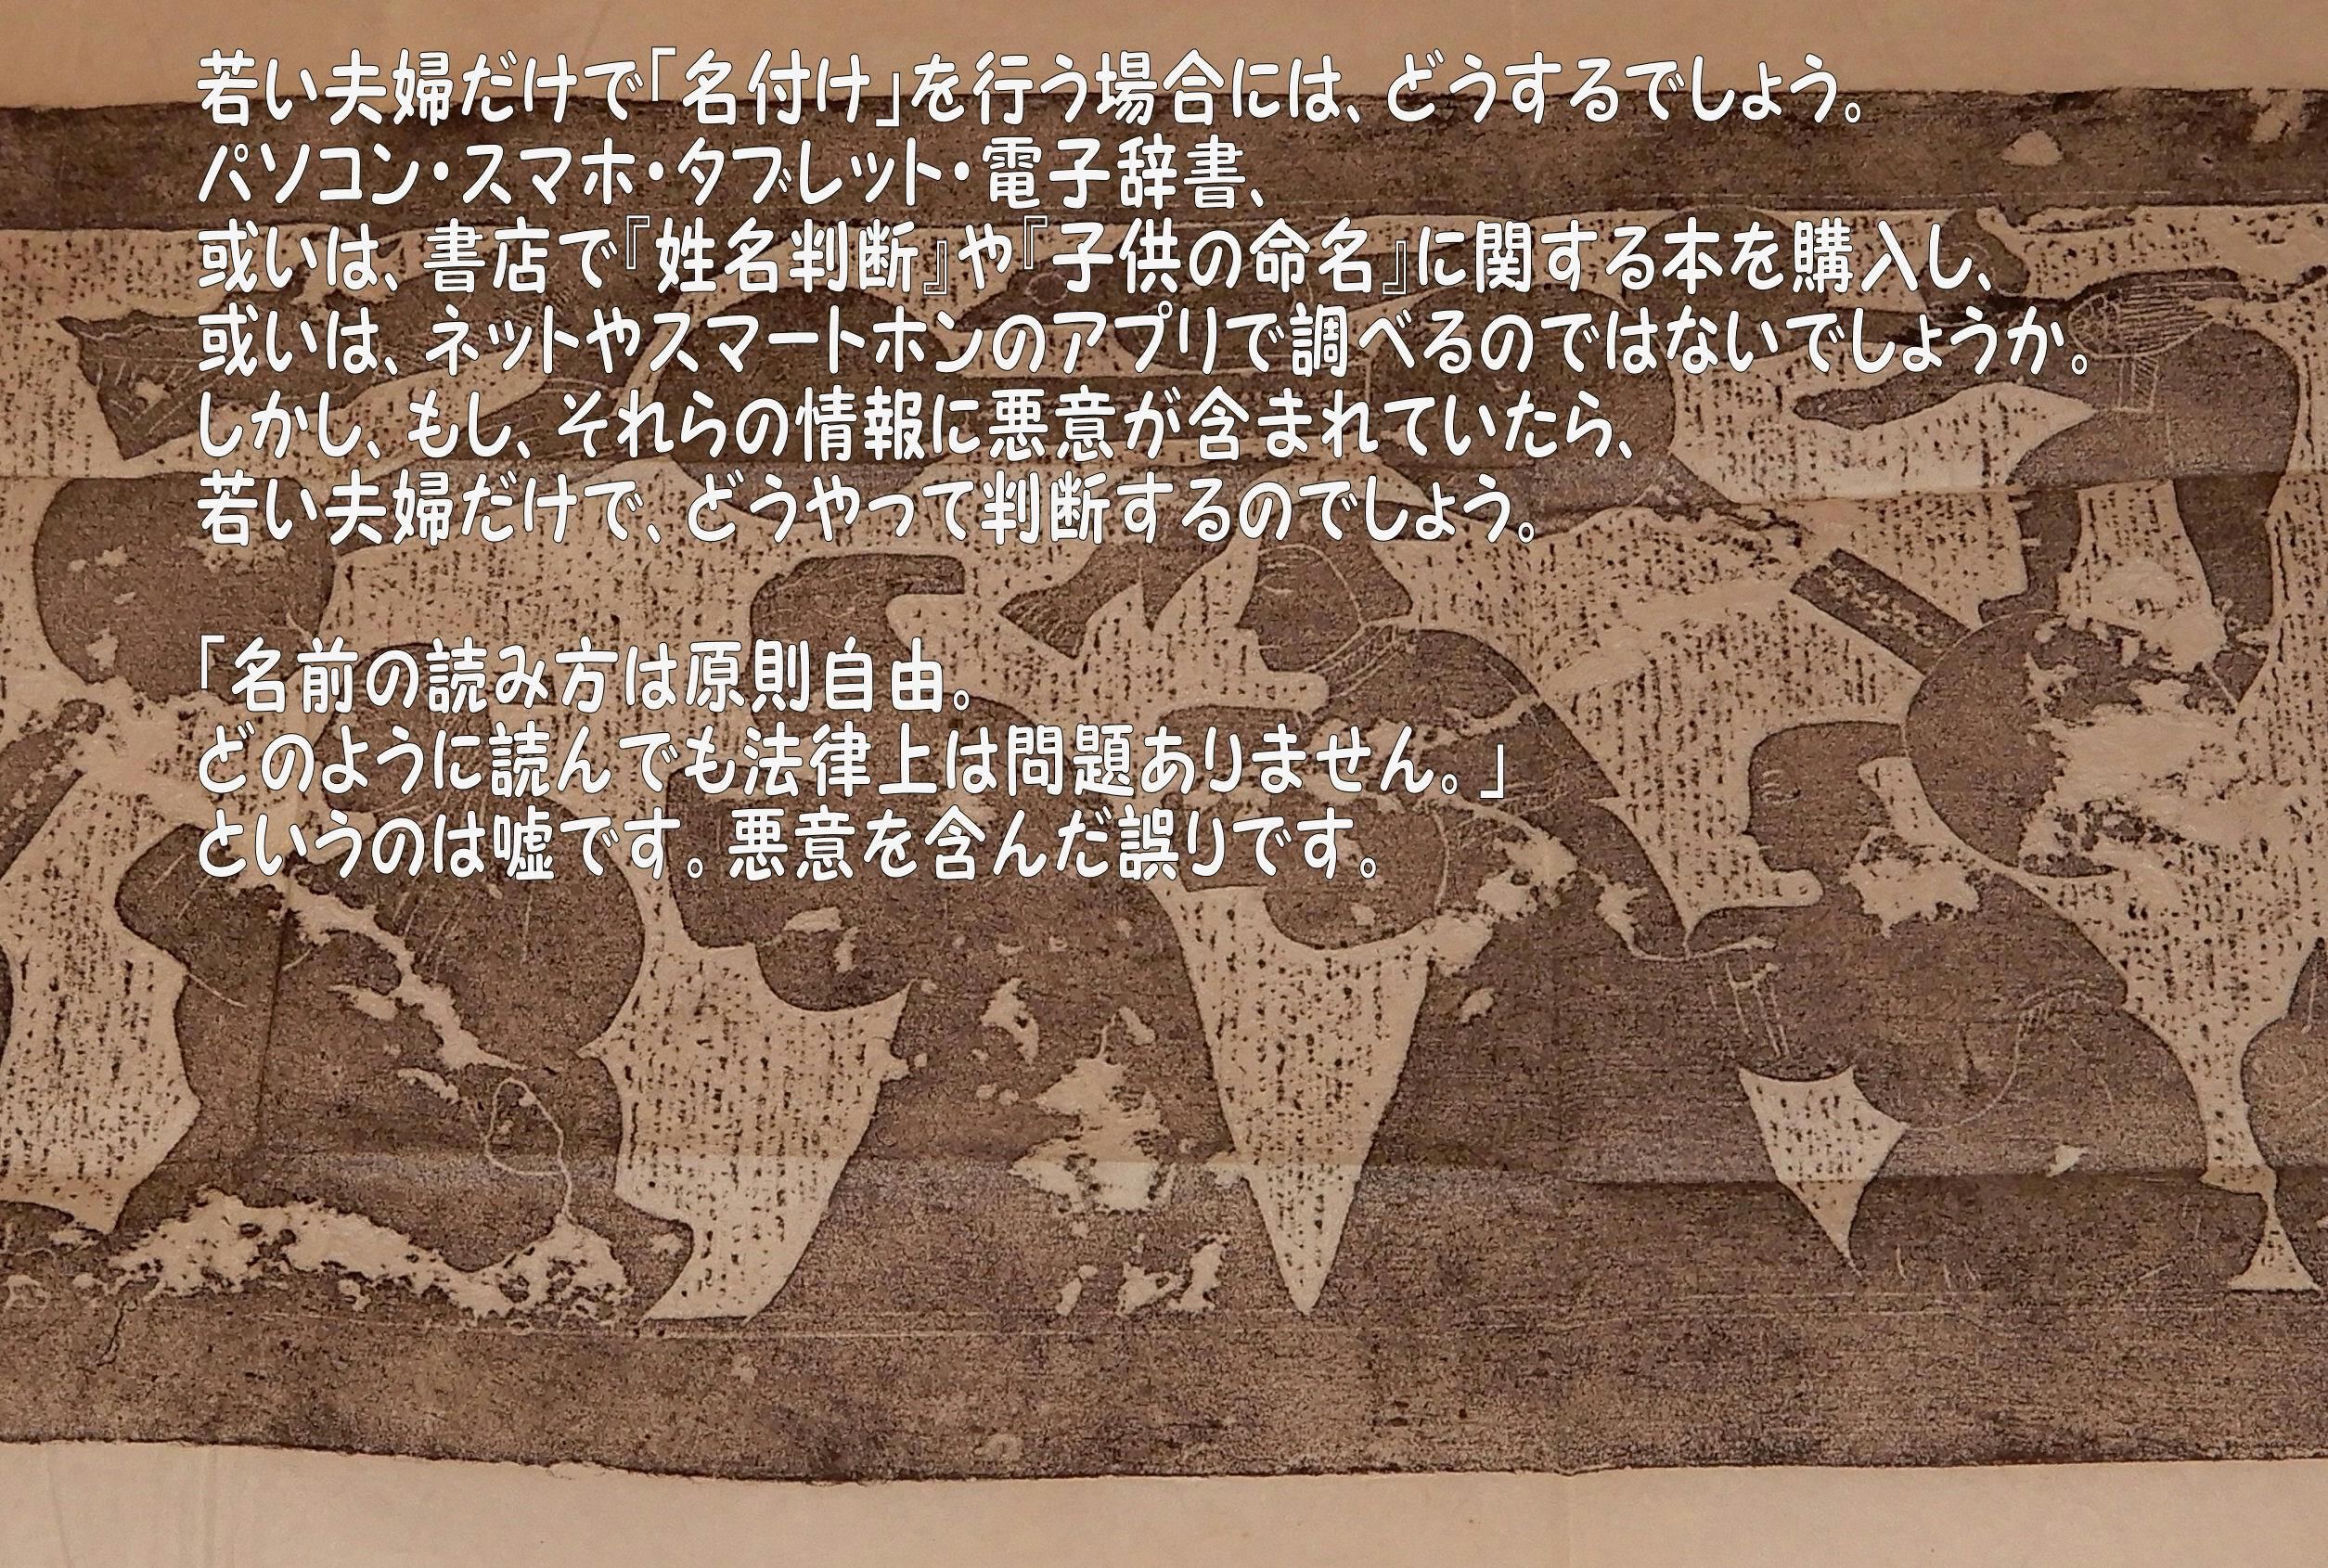 若い夫婦だけで「名付け」を行う場合には、どうするでしょう。
パソコン・スマホ・タブレット・電子辞書、
或いは、書店で『姓名判断』や『子供の命名』に関する本を購入し、
或いは、ネットやスマートホンのアプリで調べるのではないでしょうか。
しかし、もし、それらの情報に悪意が含まれていたら、
若い夫婦だけで、どうやって判断するのでしょう。
「名前の読み方は原則自由。
どのように読んでも法律上は問題ありません。」
というのは嘘です。悪意を含んだ誤りです。